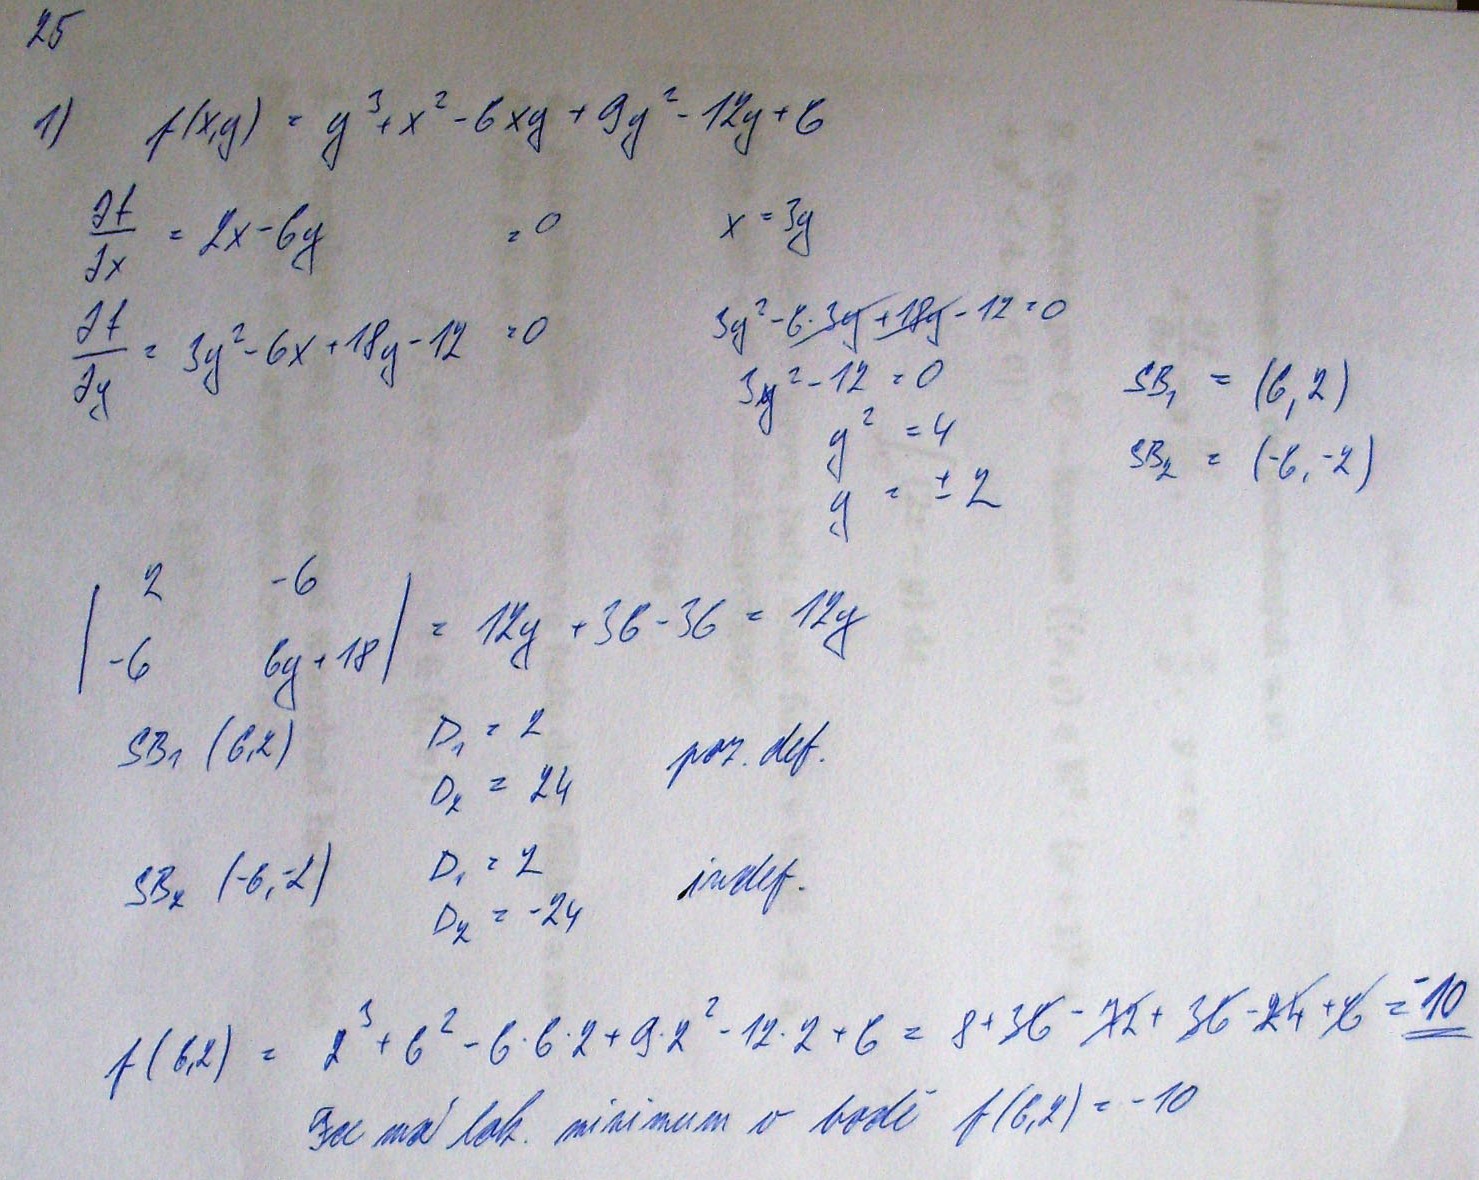 25
1) f(x,y) = y³+x²-6xy+9y²-12y+6
∂f/∂x = 2x-6y = 0 x = 3y
∂f/∂y = 3y²-6x+18y-12 = 0 3y²-6·3y+18y-12=0
3y²-12=0 SB₁ = (6,2)
y² = 4 SB₂ = (-6,-2)
y = ±2
| 2 -6 |
| -6 6y+18 | = 12y+36-36 = 12y
SB₁ (6,2) D₁ = 2 poz. def.
D₂ = 24
SB₂ (-6,-2) D₁ = 2 indef.
D₂ = -24
f(6,2) = 2³+6²-6·6·2+9·2²-12·2+6 = 8+36-72+36-24+6 = -10
Fce má lok. minimum v bodě f(6,2) = -10